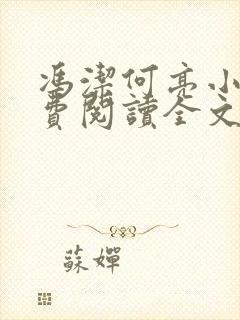 馮潔何亮小
費閱讀全文
蘇嬋